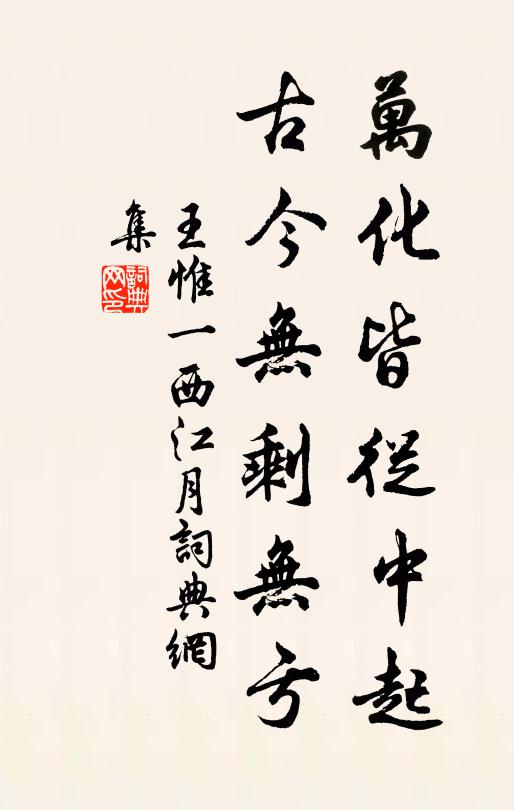 萬化皆從中起
古今無剩無亏
王惟一西江月詞典網
集
詞典
网印